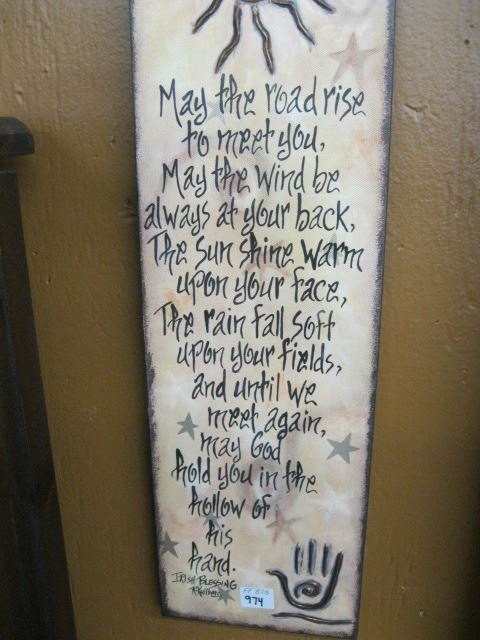 May the road rise
to meet you,
May the wind be
always at your back,
The sun shine warm
upon your face,
The rain fall soft
upon your fields,
and until we
meet again,
may God
hold you in the
hollow of
his
hand.
IRISH BLESSING
974